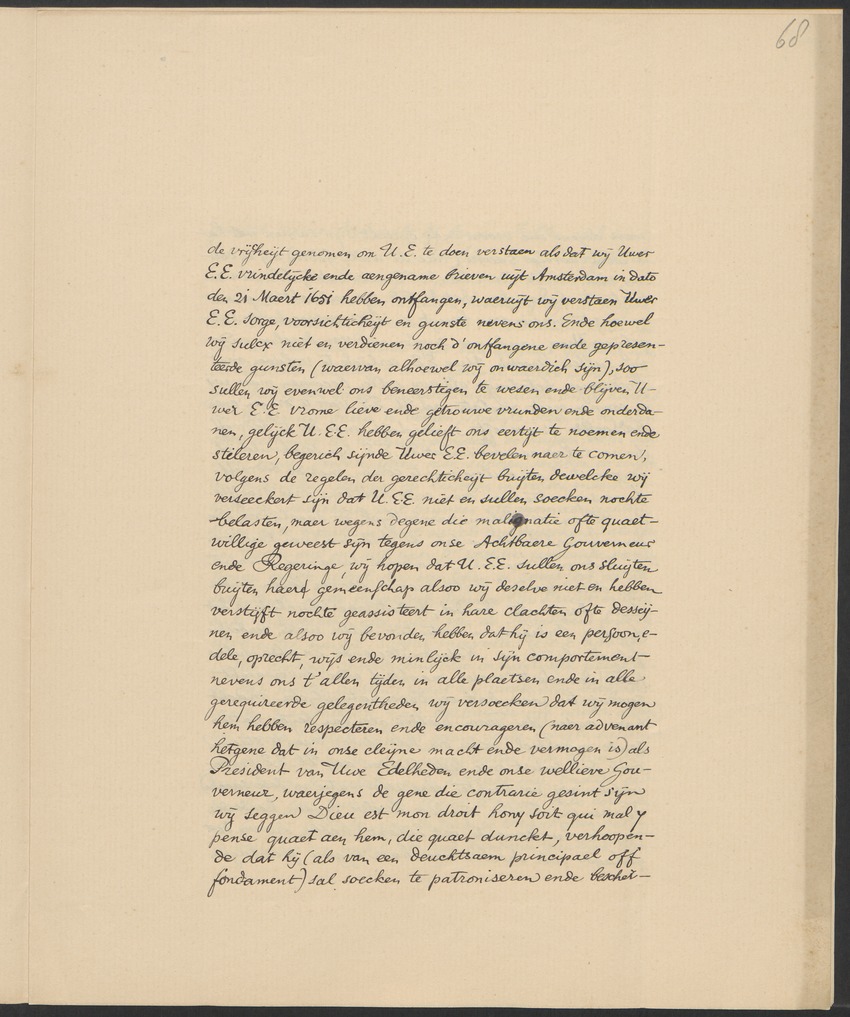 68
de vrijheijt genomen om U.E. te doen verstaen als dat wij Uwer
E.E. vrindelijcke ende aengename brieven uijt Amsterdam in dato
den 21 Maert 1651 hebben ontfangen, waeruijt wij verstaen Uwer
E.E. sorge, voorsichticheijt en gunste nevens ons. Ende hoewel
wij sulcx niet en verdienen noch d'ontfangene ende gepresen-
teerde gunsten (waervan alhoewel wij onwaerdich sijn), soo
sullen wij evenwel ons beneerstegen te wesen ende blijven U-
wer E.E. vrome lieve ende getrouwe vrunden ende onderda-
nen, gelijck U.E.E. hebben gelieft ons eertijt te noemen ende
stileren, begerich sijnde Uwer E.E. bevelen naer te comen,
volgens de regelen der gerechticheijt buijten dewelcke wij
verseeckert sijn dat U.E.E. niet en sullen soecken nochte
belasten, maer wegens degene die malignatie ofte quaet-
willige geweest sijn tegens onse Achtbaere Gouverneur
ende Regeringe, wij hopen dat U.E.E. sullen ons sluijten
buijten haer gemeenschap alsoo wij deselve niet en hebben
verstijft nochte geassisteert in hare clachten ofte desseij-
nen ende alsoo wij bevonden hebben dat hij is een persoon, e-
dele, oprecht, wijs ende minlijck in sijn comportement
nevens ons t'allen tijden in alle plaetsen ende in alle
gerequireerde gelegentheden wij versoecken dat wij mogen
hem hebben respecteren ende encourageren (naer advenant
hetgene dat in onse cleijne macht ende vermogen is) als
President van Uwe Edelheden ende onse wellieve Gou-
verneur, waerjegens de gene die contrarie gesint sijn
wij seggen Dieu est mon droit hony soit qui mal y
pense quaet aen hem, die quaet dunckt, verhoopen-
de dat hij (als van een deuchtsaem principael off
fondament) sal soecken te patroniseren ende bescher-